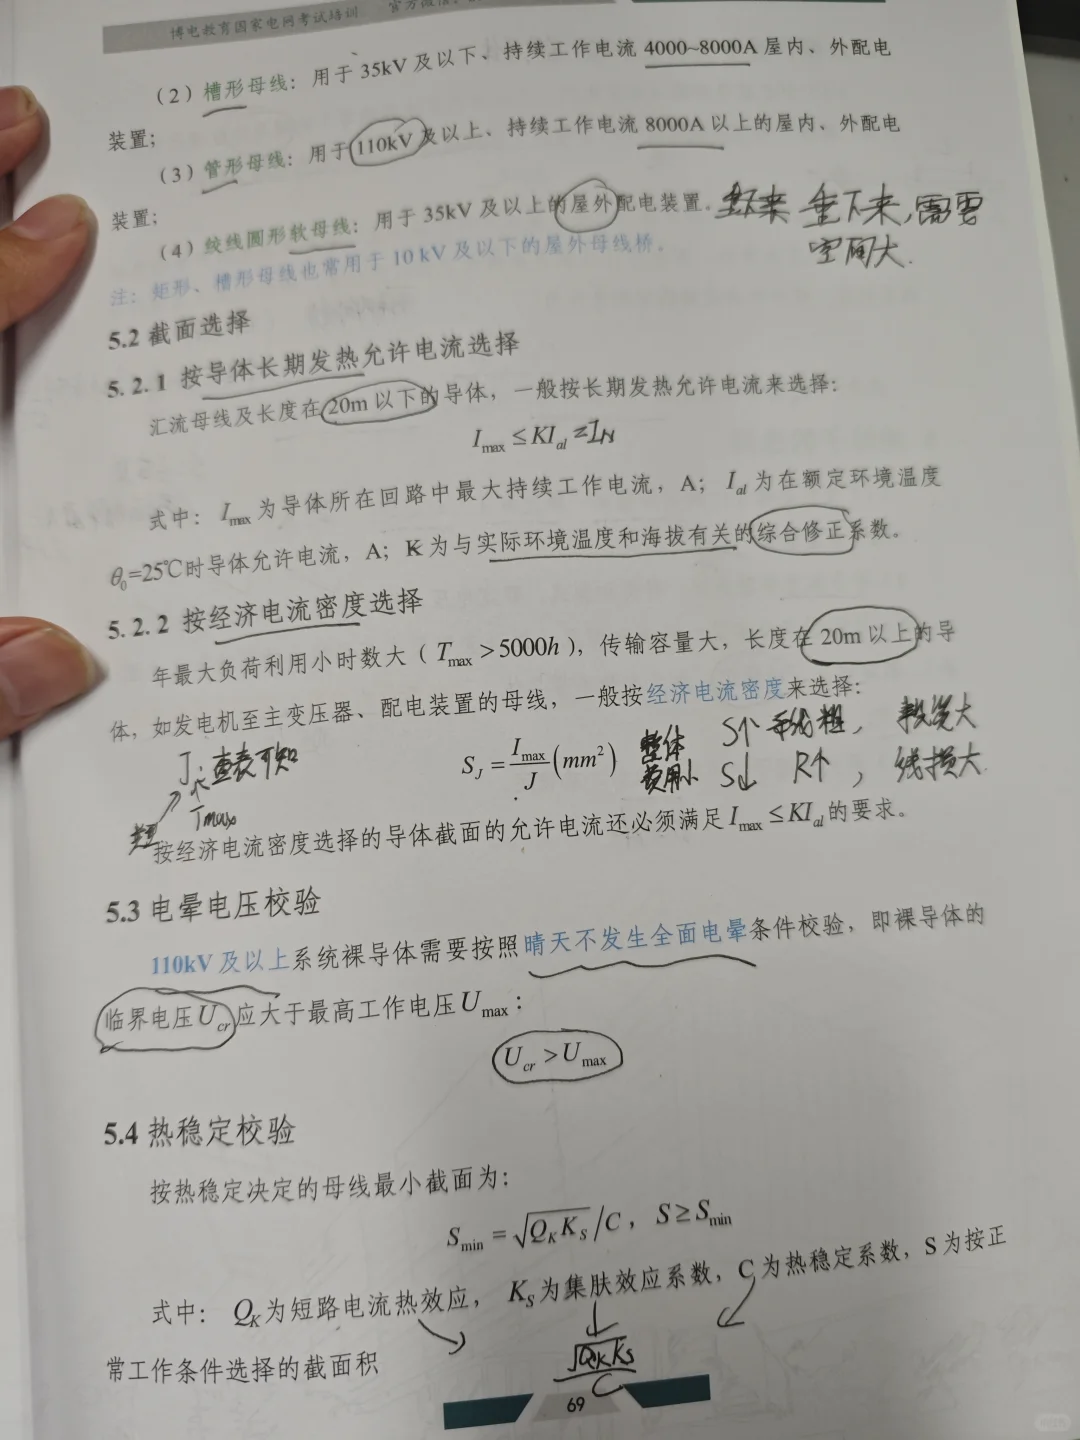 博电教育国家电网考试培训 官方微信
(2)槽形母线：用于 35kV 及以下、持续工作电流 4000~8000A 屋内、外配电
装置；
(3)管形母线：用于 110kV 及以上、持续工作电流 8000A 以上的屋内、外配电
装置；
(4)绞线圆形软母线：用于 35kV 及以上的屋外配电装置。 垂下来，需要
空间大.
注：矩形、槽形母线也常用于 10 kV 及以下的屋外母线桥。
5.2 截面选择
5.2.1 按导体长期发热允许电流选择
汇流母线及长度在 20m 以下的导体，一般按长期发热允许电流来选择：
I_max ≤ KI_al =I_N
式中： I_max 为导体所在回路中最大持续工作电流，A； I_al 为在额定环境温度
θ_0=25℃时导体允许电流，A；K 为与实际环境温度和海拔有关的综合修正系数。
5.2.2 按经济电流密度选择
年最大负荷利用小时数大（T_max >5000h），传输容量大，长度在 20m 以上的导
体，如发电机至主变压器、配电装置的母线，一般按经济电流密度来选择：
J：查表可知
S_J = I_max/J (mm²) 整体 S↑ 导线粗， 投资大
费用小 S↓ R↑， 线损大
Tmax
按经济电流密度选择的导体截面的允许电流还必须满足 I_max ≤ KI_al 的要求。
5.3 电晕电压校验
110kV 及以上系统裸导体需要按照晴天不发生全面电晕条件校验，即裸导体的
临界电压 U_cr 应大于最高工作电压 U_max：
U_cr > U_max
5.4 热稳定校验
按热稳定决定的母线最小截面为：
S_min = √(Q_K K_S) /C， S ≥ S_min
式中： Q_K 为短路电流热效应， K_S 为集肤效应系数，C 为热稳定系数，S 为按正
常工作条件选择的截面积
√(Q_K K_S)/C
69